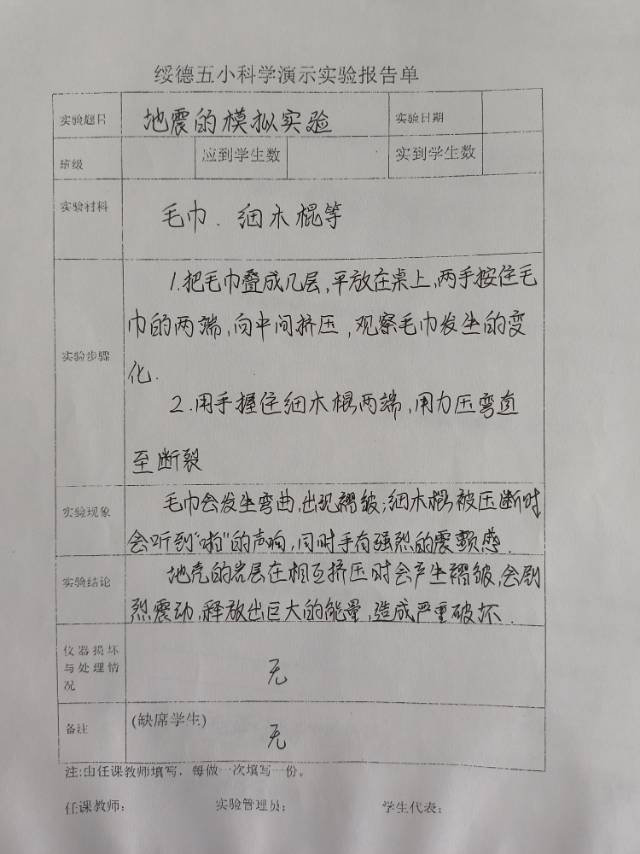 绥德五小科学演示实验报告单
实验题目 地震的模拟实验 实验日期
班级 应到学生数 实到学生数
实验材料 毛巾、细木棍等
1.把毛巾叠成几层,平放在桌上,两手按住毛
巾的两端,向中间挤压,观察毛巾发生的变
实验步骤
化.
2.用手握住细木棍两端,用力压弯直
至断裂
毛巾会发生弯曲,出现褶皱;细木棍被压断时
实验现象
会听到“啪”的声响,同时手有强烈的震颤感.
实验结论 地壳的岩层在相互挤压时会产生褶皱,会剧
烈震动,释放出巨大的能量,造成严重破坏.
仪器损坏
与处理情
况
无
备注 (缺席学生)
无
注:由任课教师填写,每做一次填写一份。
任课教师: 实验管理员: 学生代表: